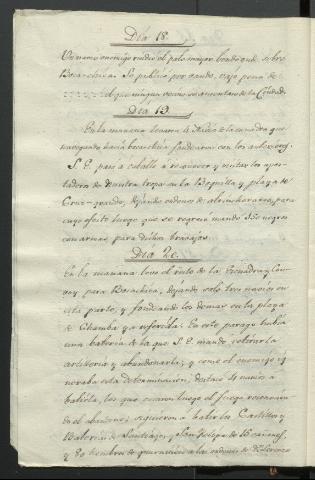 Dia 18.
Un navio enemigo rindió el palo mayor bordeando sobre
Bocachica. Se publicó por vando, vajo pena de
el que ningun vecino se ausentase de la Ciudad.
Dia 19.
En la mañana levaron 4 Navios de la esquadra que
navegando hacia bocachica fondearon con los anteriores,
S. E. pasó a caballo a reconocer y visitar los apos-
taderos de nuestra tropa en la Boquilla, y playa de
Cruz-grande, dejando ordenes de atrincherarse, para
cuyo efecto luego que se regresó mandó 150 negros
con armas para dichos trabajos.
Dia 20.
En la mañana levó el resto de la Escuadra y Com-
voy para Bocachica, dejando solo tres navios en
esta parte, y fondeando los demas en la playa
de Chamba ya referida. En este parage habia
una bateria de la que S. E. mandó retirar la
artilleria y abandonarla; y como el enemigo ig-
noraba esta determinacion, destacó 4 navios a
batirla, los que cesaron luego el fuego reconocien-
do el abandono, siguieron a batir los Castillos y
Baterias de Santiago, y San Felipe de 15 cañones,
y 80 hombres de guarnicion a las ordenes de Dn Lorenzo